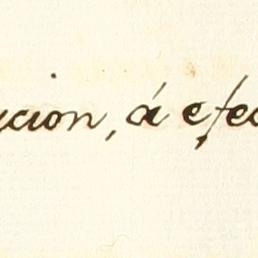 cion, á efec